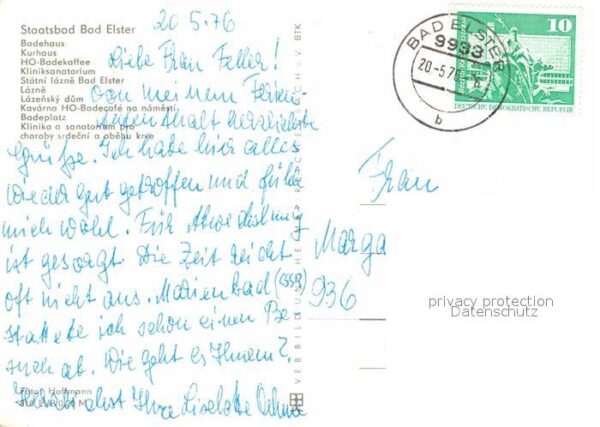 20.5.76
Staatsbad Bad Elster
Badehaus
Kurhaus
HO-Badekaffee
Kliniksanatorium
Státní lázně Bad Elster
Lázně
Lázeňský dům
Kavárna HO-Badecafé na náměstí
Badeplatz
Klinika a sanatorium pro
choroby srdeční a oběhu krve
Liebe Frau Feller!
von meinem Ferien-
aufenthalt herzlichste
Grüße. Ich habe hier alles
wieder gut getroffen und fühle
mich wohl. Für Abwechslung
ist gesorgt. Die Zeit reicht
oft nicht aus. Marienbad (CSSR)
stattete ich schon einen Be-
such ab. Wie geht es Ihnen?
Ihre Liselotte
Foto: Hoffmann
VEB BILD UND HEIMAT REICHENBACH I. V. BTK
BAD ELSTER
9933
20.-5.76
b
10
DEUTSCHE DEMOKRATISCHE REPUBLIK
Frau
Marga
936
privacy protection
Datenschutz